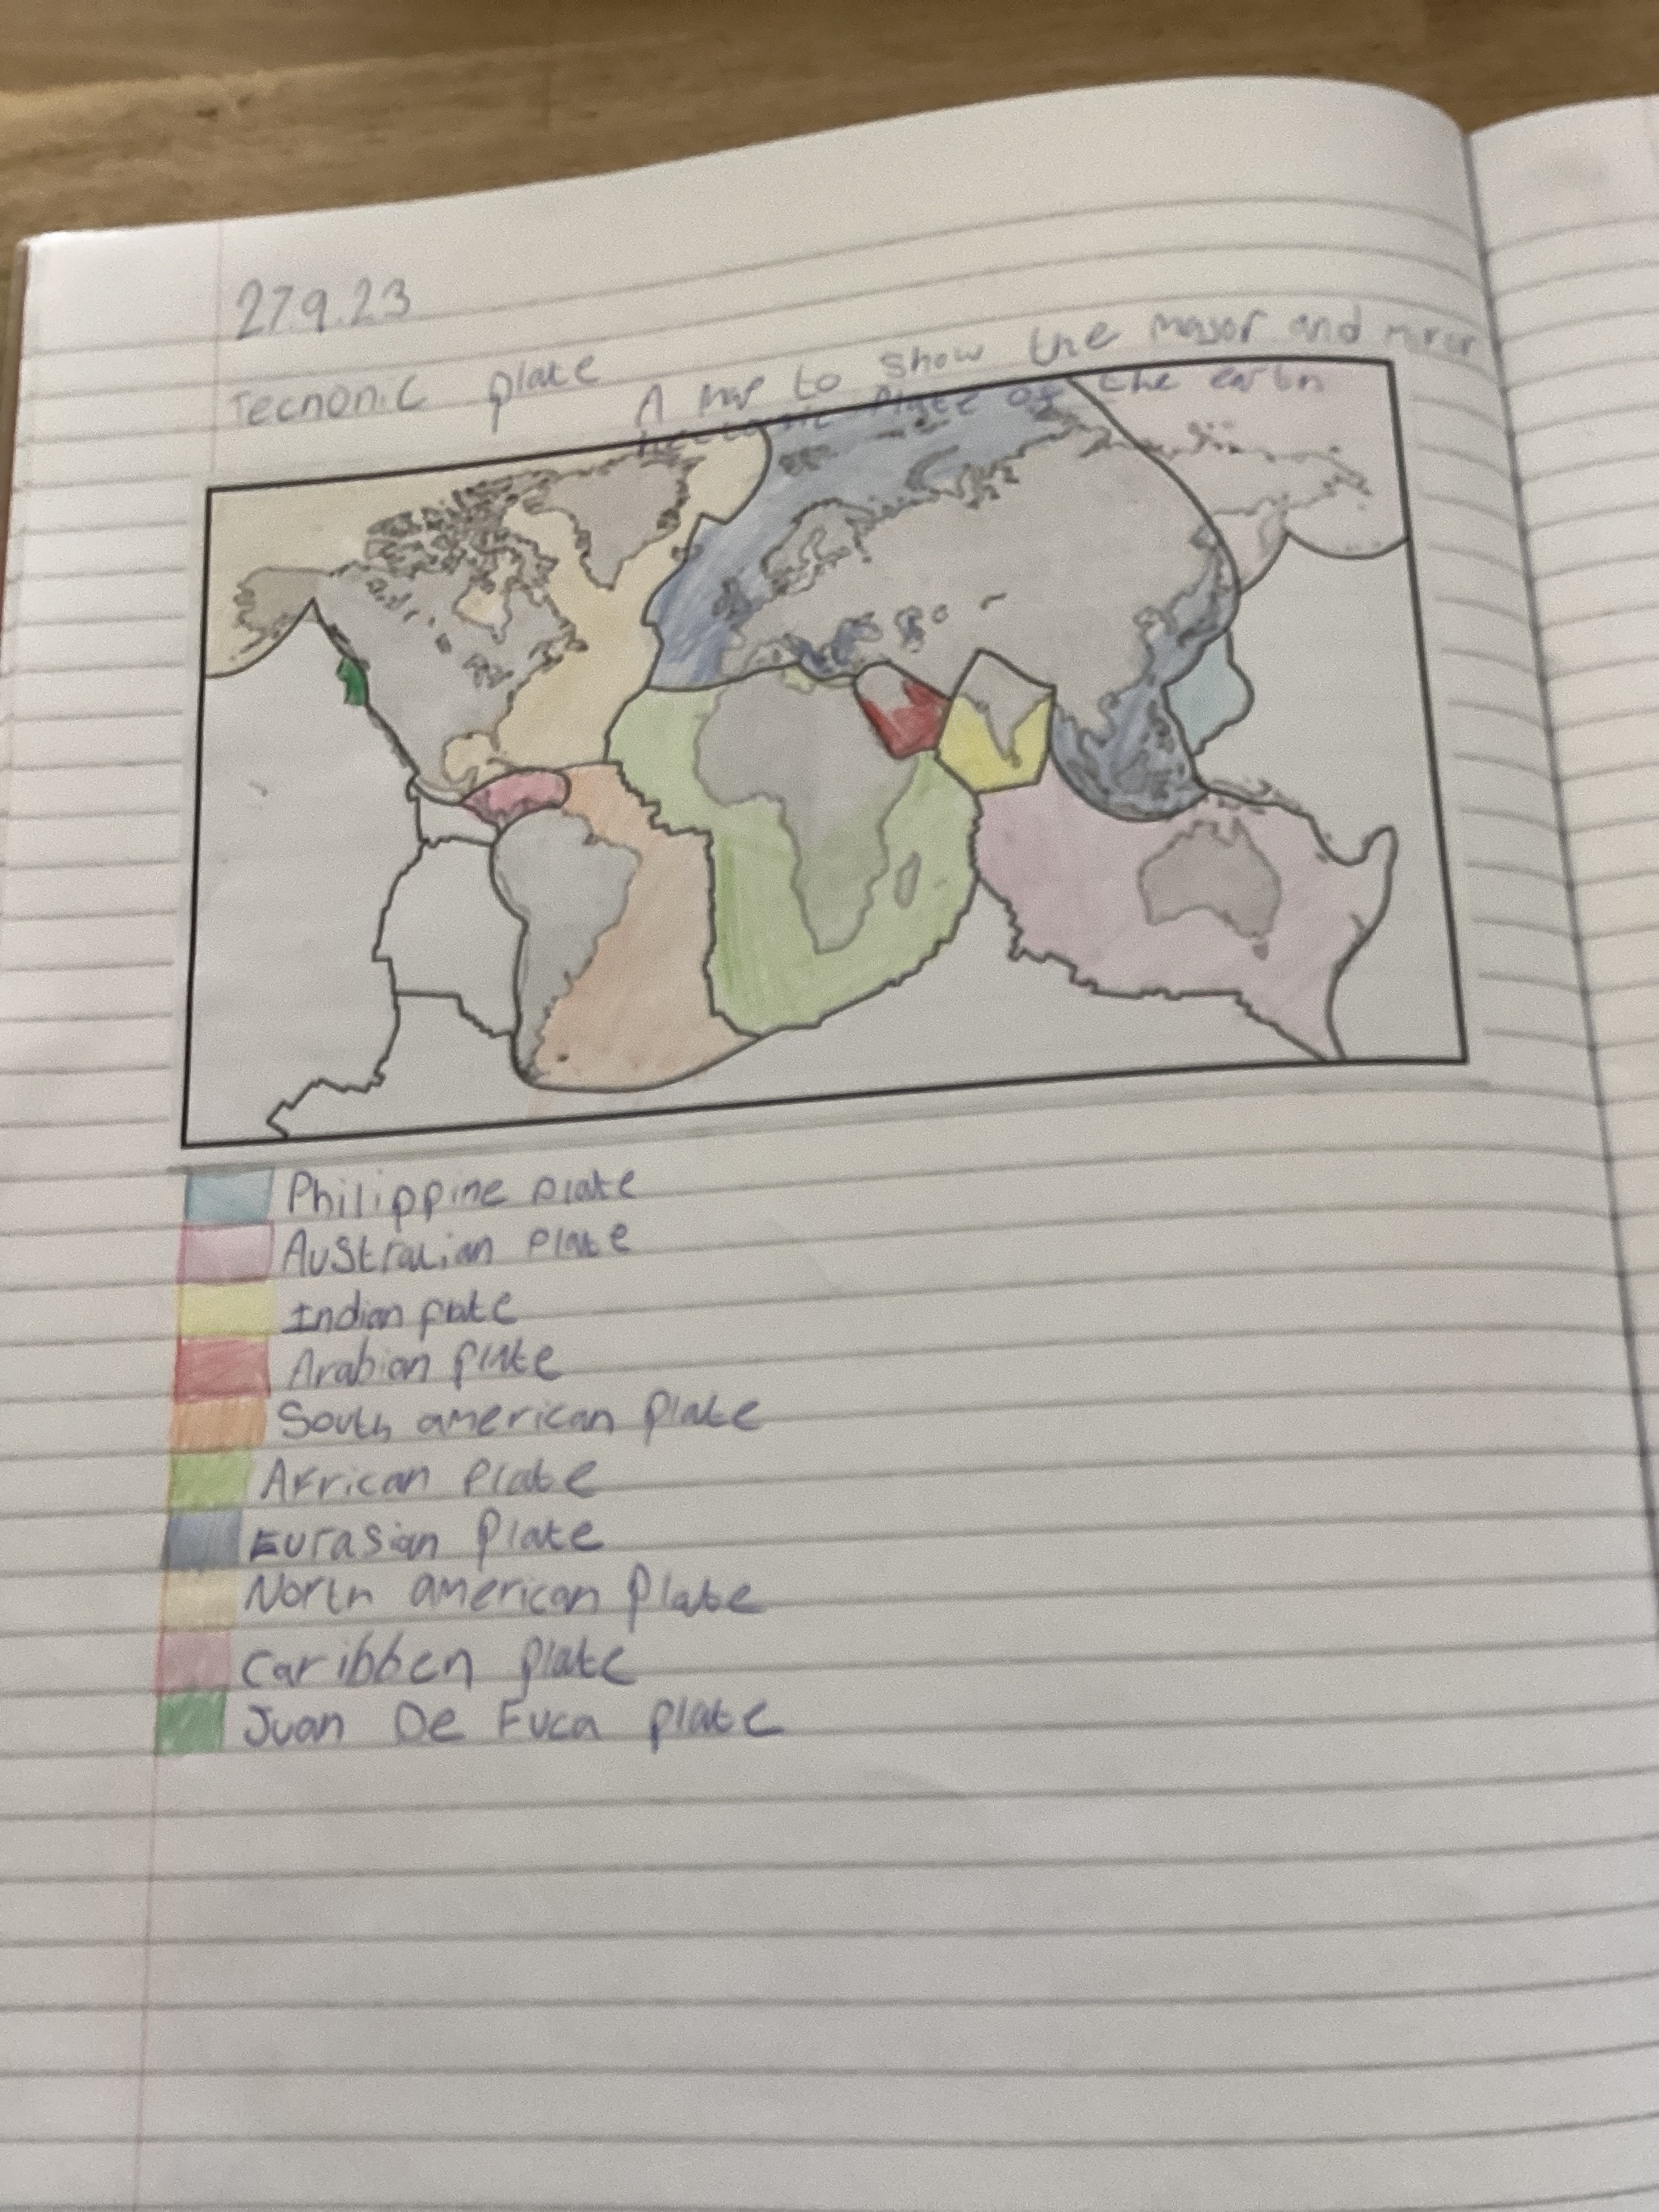 27.9.23
Tecnonic plate
A map to show the major and minor
tectonic plate of the earth
Philippine plate
Australian plate
Indian plate
Arabian plate
South american plate
African plate
Eurasian plate
North american plate
Caribben plate
Juan De Fuca plate